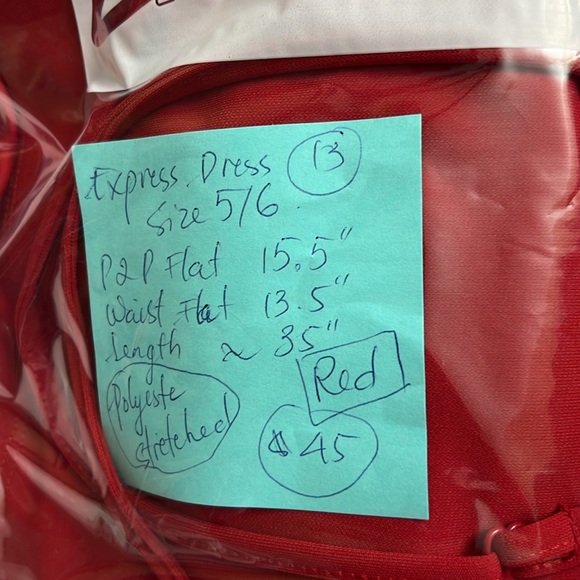 Express Dress 13
Size 5/6
P2P Flat 15.5"
Waist Flat 13.5"
Length ≈ 35"
Red
Polyeste
Stretched
$45